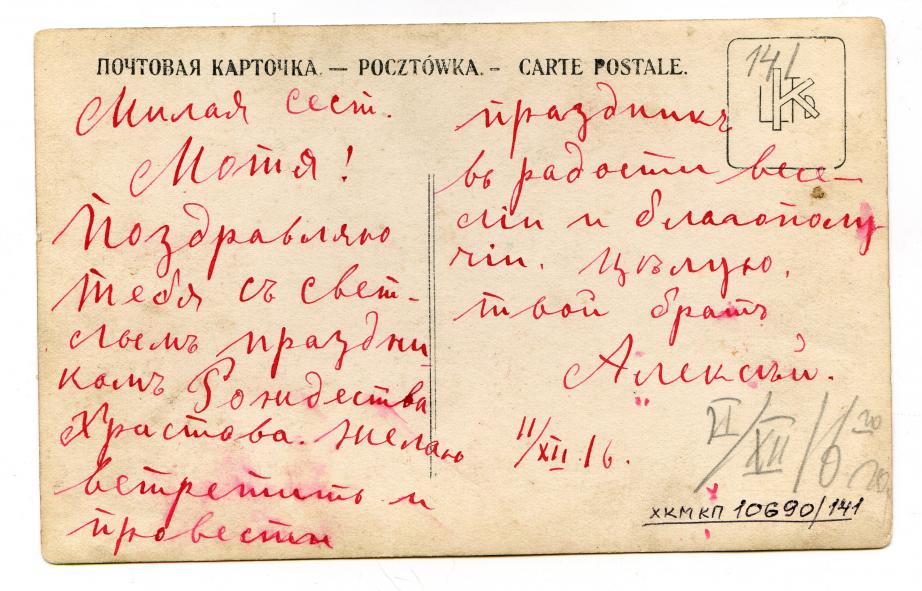 ПОЧТОВАЯ КАРТОЧКА. — POCZTÓWKA. – CARTE POSTALE.
141
Милая сест.
Мотя!
Поздравляю
тебя съ свет-
лыемъ праздни
комъ Рождества
Христова. Желаю
встретить и
провести
праздникъ
въ радости весе-
ліи и благополу
чіи. Цѣлую,
твой братъ
Алексѣй.
11/XII 16.
VI/XII/16
ХКМ КП 10690/141